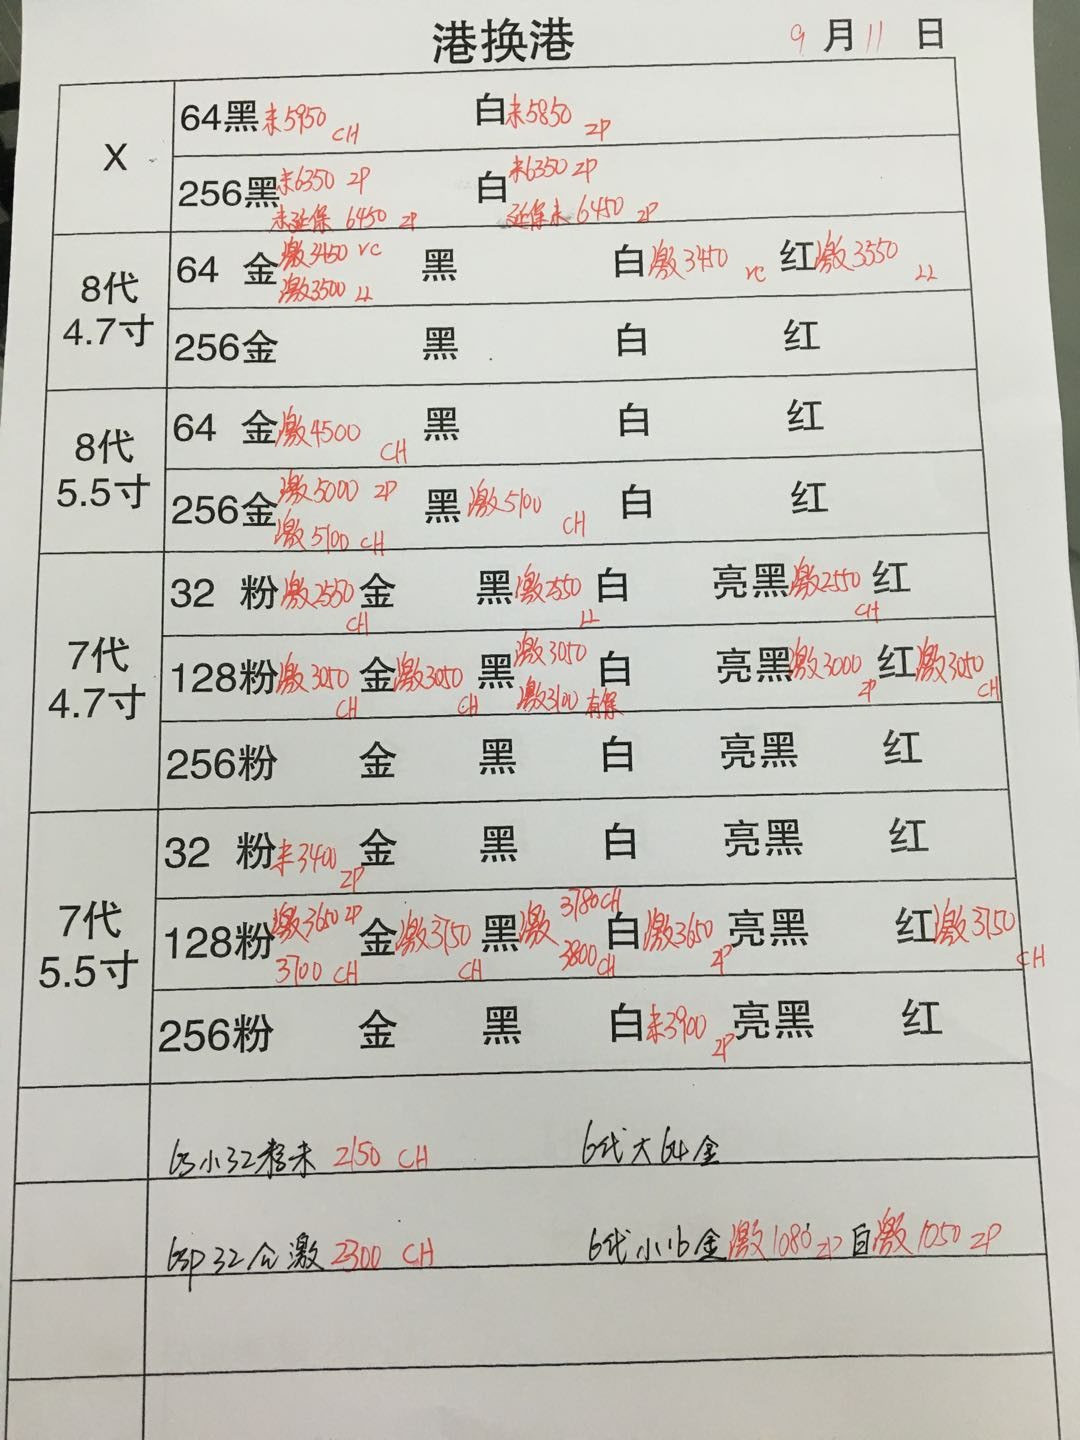 港换港 9月11日
X
64黑未5950 CH 白未5850 ZP
256黑未6350 ZP 白未6350 ZP
未延保 6450 ZP 延保未 6450 ZP
8代
4.7寸
64 金激3450 VC 黑 白激3450 VC 红激3550 LL
激3500 LL
256金 黑 白 红
8代
5.5寸
64 金激4500 CH 黑 白 红
256金激5000 ZP 黑激5100 CH 白 红
激5100 CH
7代
4.7寸
32 粉激2550 CH 金 黑激2550 LL 白 亮黑激2550 CH 红
128粉激3050 CH 金激3050 CH 黑激3050 白 亮黑激3000 ZP 红激3050 CH
激3100 有保
256粉 金 黑 白 亮黑 红
7代
5.5寸
32 粉未3400 ZP 金 黑 白 亮黑 红
128粉激3650 ZP 金激3750 CH 黑激3780CH 白激3650 ZP 亮黑 红激3750 CH
3700 CH 3800CH
256粉 金 黑 白未3900 ZP 亮黑 红
6S小32粉未 2150 CH 6代大64金
6SP32 激2300 CH 6代小16金激1080 ZP 白激1050 ZP